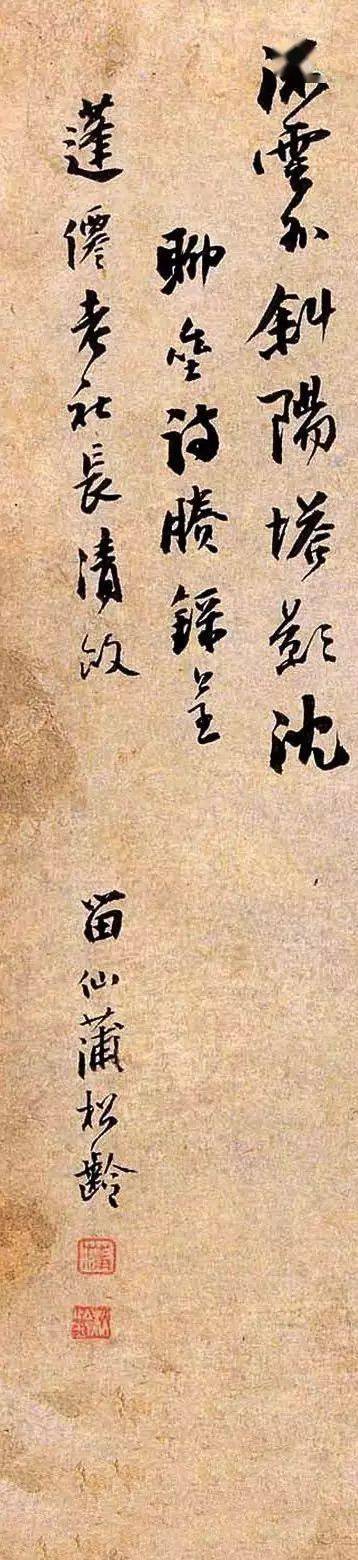 雲外斜陽塔影沈
聊詩賸錄呈
蓬僊老社長清政
留仙蒲松齡